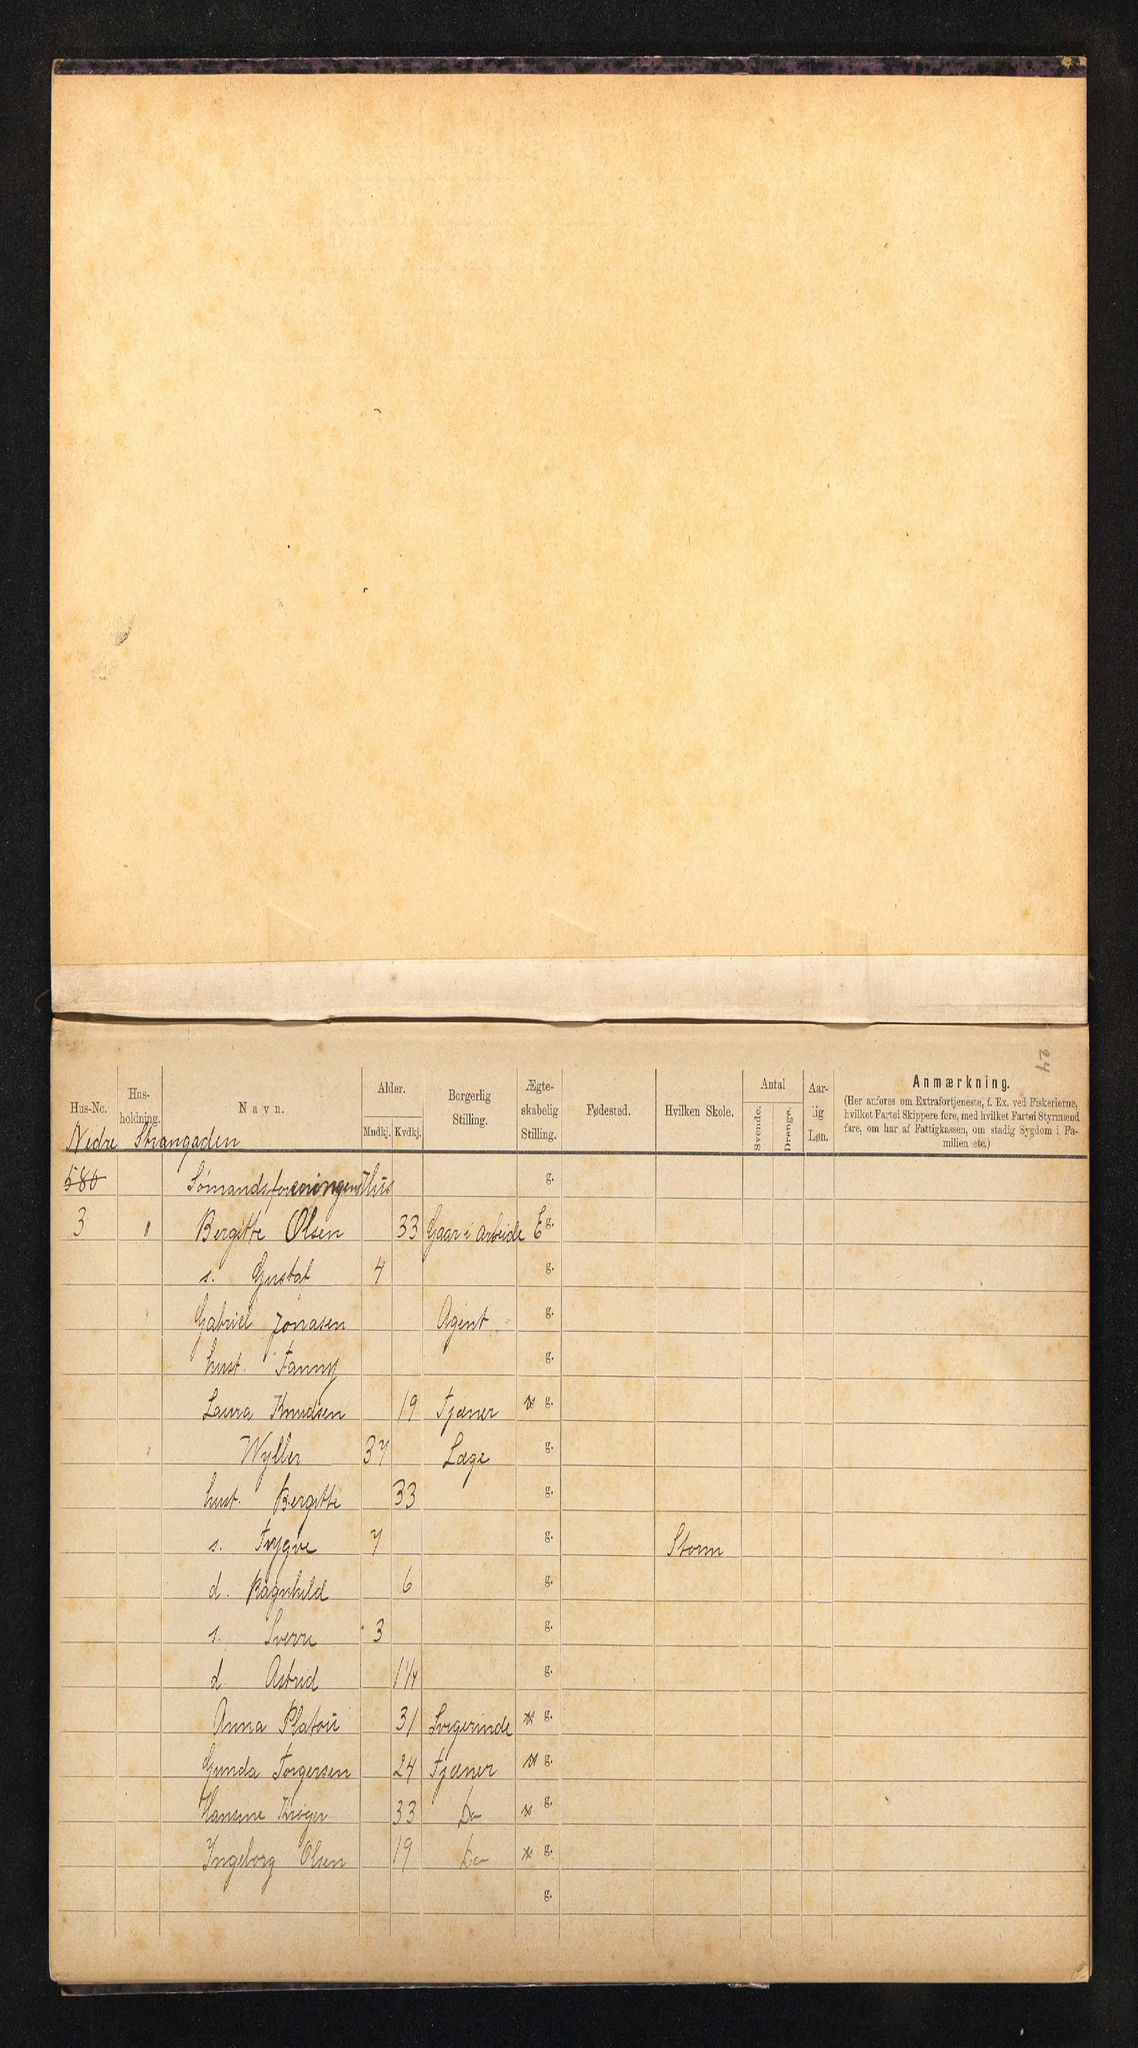 24
Hus-No. Hus-holdning. Navn. Alder. Mndkj. Kvdkj. Borgerlig Stilling. Ægte-skabelig Stilling. Fødested. Hvilken Skole. Antal Svende. Drenge. Aar-lig Løn. Anmærkning.
(Her anføres om Extrafortjeneste, f. Ex. ved Fiskerierne,
hvilket Fartøi Skippere føre, med hvilket Fartøi Styrmænd
fare, om har af Fattigkassen, om stadig Sygdom i Fa-
milien etc.)
Nedre Strangaden
580 Sømandsforeningens Hus g.
3 " Bergitte Olsen 33 Gaar i arbeide E g.
s. Gustaf 4 g.
Gabriel Jonasen Agent g.
hust. Fanny g.
Laura Knudsen 19 Tjener g.
" Wyller 37 Læge g.
hust. Bergitte 33 g.
s. Trygve 7 g. Storm
d. Ragnhild 6 g.
s. Sverre 3 g.
d. Astrid 1 1/4 g.
Anna Platou 31 Svigerinde g.
Gunda Torgersen 24 Tjener g.
Hansine Krøger 33 Do g.
Ingeborg Olsen 19 Do g.
g.